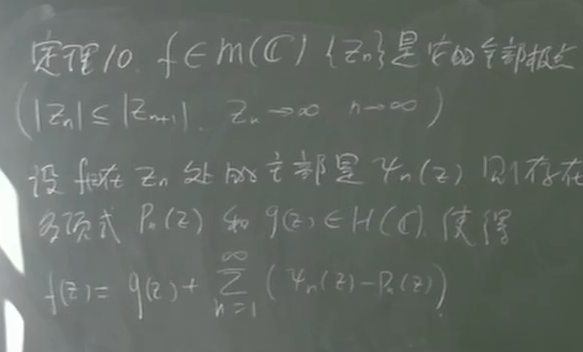 定理10. f∈m(ℂ) {Zn}是它的全部极点
(|Zn|≤|Zn+1|. Zn→∞ n→∞)
设f(z)在Zn处的主部是Ψn(z) 则存在
多项式Pn(z)和g(z)∈H(ℂ).使得
f(z)=g(z)+∑_{n=1}^{∞}(Ψn(z)-Pn(z))